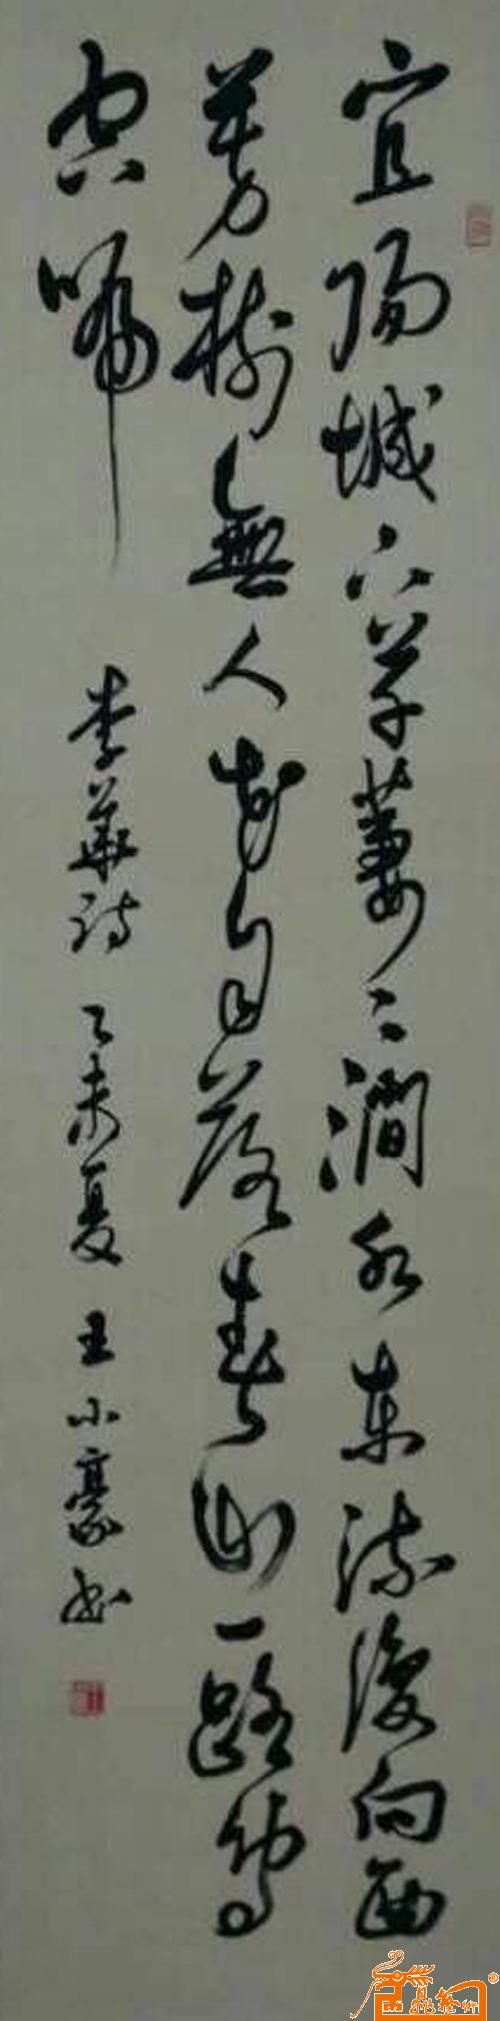 宜陽城下草萋〻澗水東流復向西
芳樹無人花自落春山一路鳥
空啼 李華詩 乙未夏 王小豪书